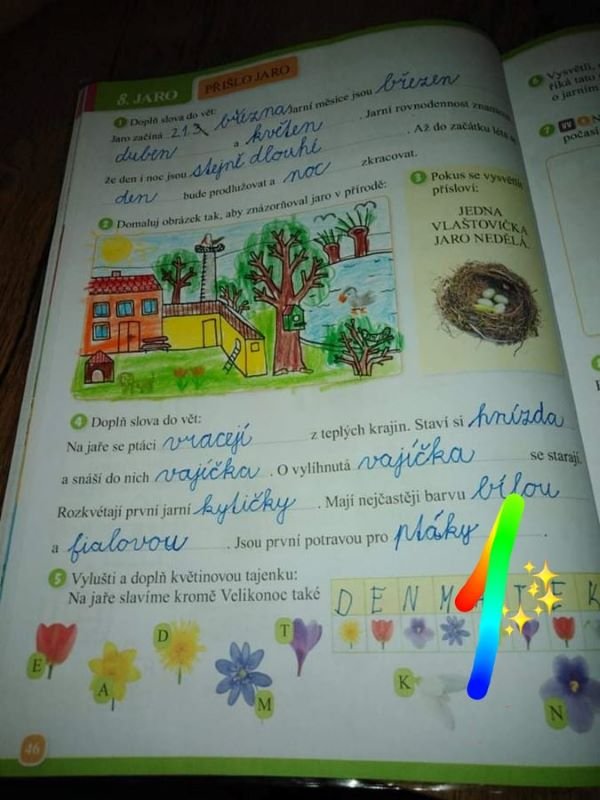 8. JARO
PŘIŠLO JARO
1 Doplň slova do vět:
Jaro začíná 21.3. března. Jarní měsíce jsou březen
duben a květen. Jarní rovnodennost znamená
že den i noc jsou stejně dlouhé. Až do začátku léta se
den bude prodlužovat a noc zkracovat.
2 Domaluj obrázek tak, aby znázorňoval jaro v přírodě:
3 Pokus se vysvětlit
přísloví:
JEDNA
VLAŠTOVIČKA
JARO NEDĚLÁ.
4 Doplň slova do vět:
Na jaře se ptáci vracejí z teplých krajin. Staví si hnízda
a snáší do nich vajíčka. O vylíhnutá vajíčka se starají.
Rozkvétají první jarní kytičky. Mají nejčastěji barvu bílou
a fialovou. Jsou první potravou pro ptáky.
5 Vylušti a doplň květinovou tajenku:
Na jaře slavíme kromě Velikonoc také
D E N M T E K
E
A
D
M
T
K
N
46
6 Vysvětli,
říká tato
o jarním
7
počasí